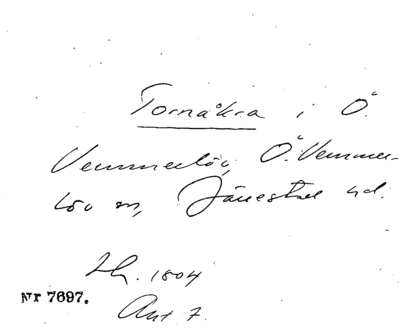 Tornåkra i Ö.
Vemmerlöv, Ö. Vemmer-
löv sn, Järrestad hd.
Lh. 1804
Nr 7697.
Akt 7.